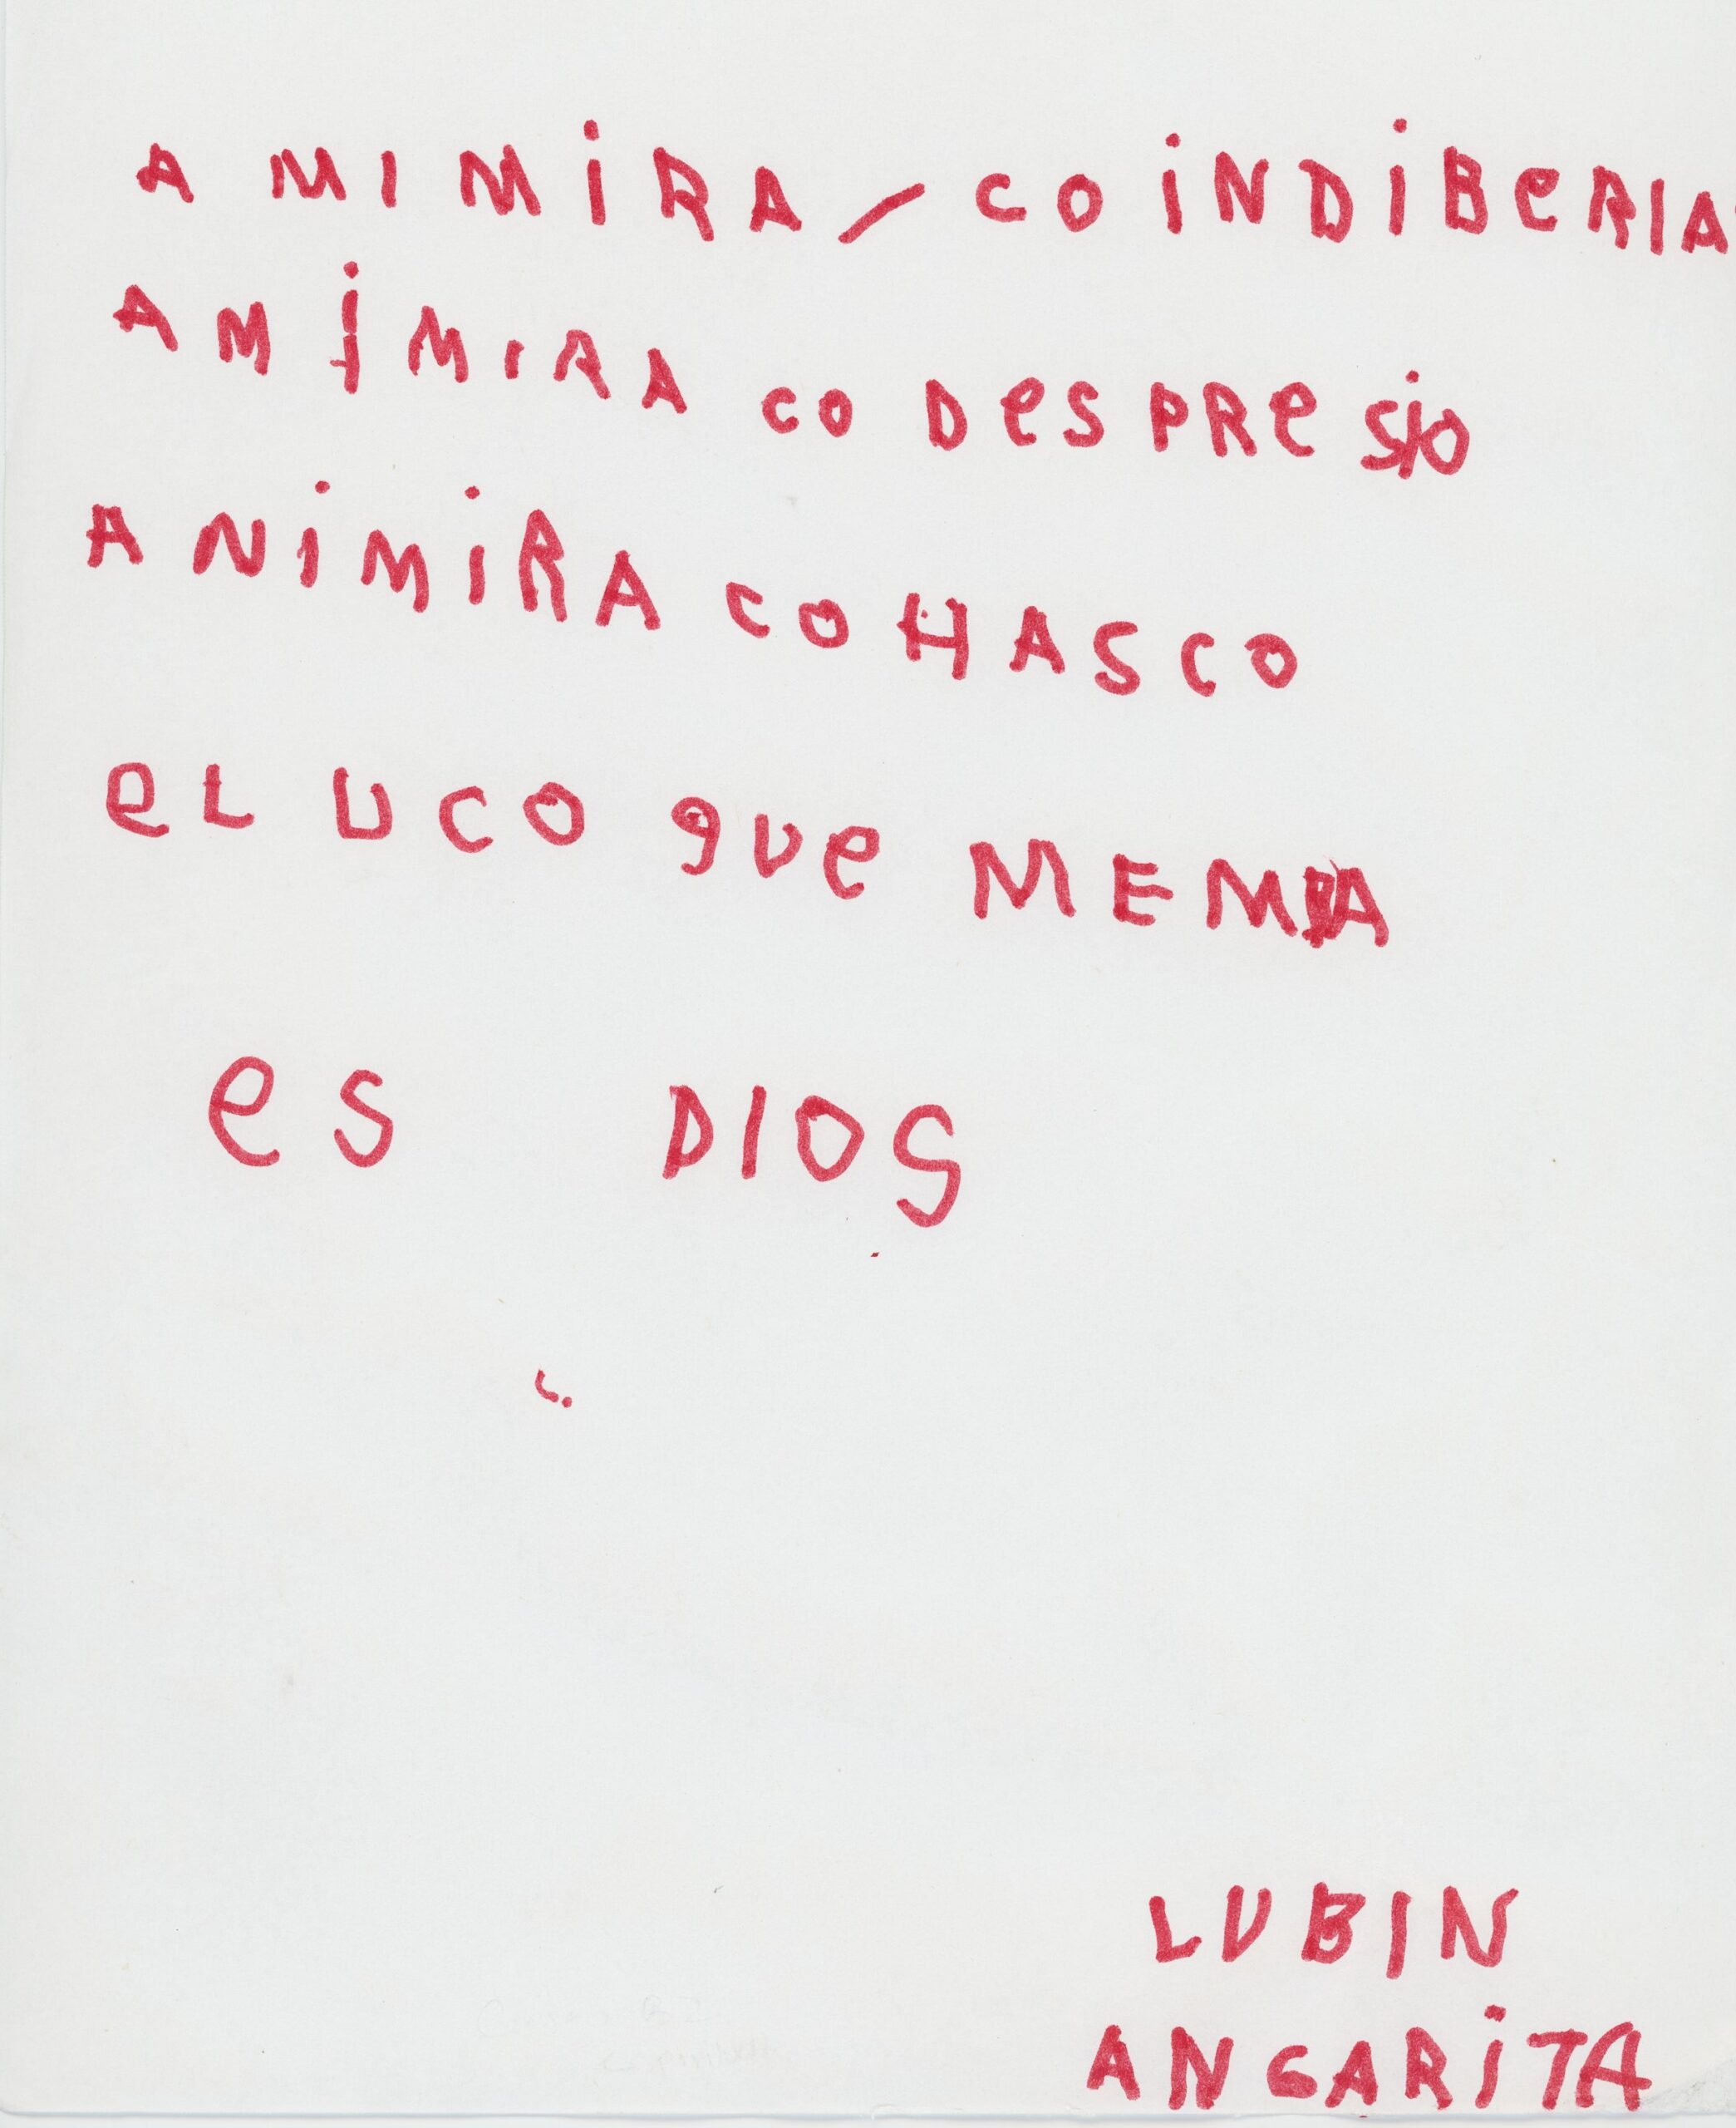 A MI MIRA / CO INDIBERIA
A MI MIRA CO DESPRESIO
A NI MIRA CO HASCO
EL UCO QUE ME MIRA
ES DIOS
LUBIN
ANGARITA